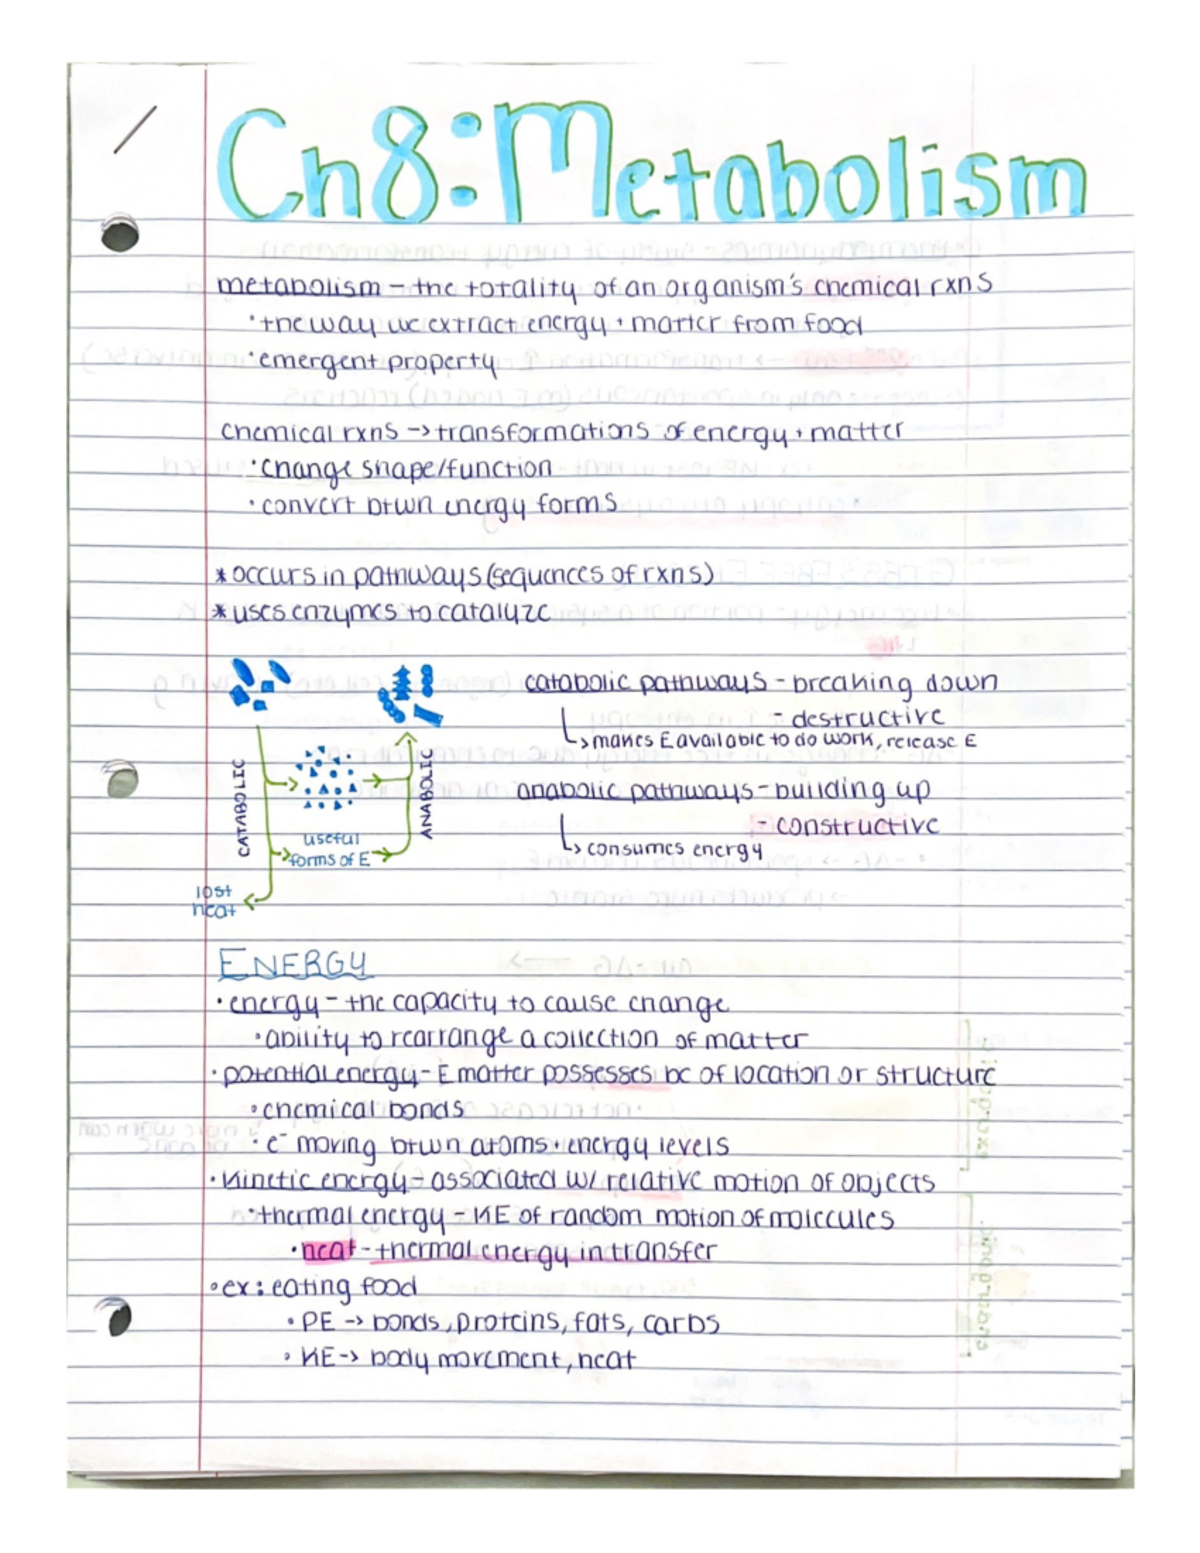 Ch8: Metabolism
metabolism - the totality of an organism's chemical rxns
·the way we extract energy + matter from food
·emergent property
chemical rxns -> transformations of energy + matter
·change shape/function
·convert btwn energy forms
*occurs in pathways (sequences of rxns)
*uses enzymes to catalyze
catabolic pathways - breaking down
- destructive
↳ makes E available to do work, release E
anabolic pathways - building up
- constructive
↳ consumes energy
CATABOLIC
ANABOLIC
useful
forms of E
lost
heat
ENERGY
·energy - the capacity to cause change
·ability to rearrange a collection of matter
·potential energy - E matter possesses bc of location or structure
·chemical bonds
·e⁻ moving btwn atoms + energy levels
·kinetic energy - associated w/ relative motion of objects
·thermal energy - KE of random motion of molecules
·heat - thermal energy in transfer
·ex: eating food
·PE -> bonds, proteins, fats, carbs
·KE -> body movement, heat